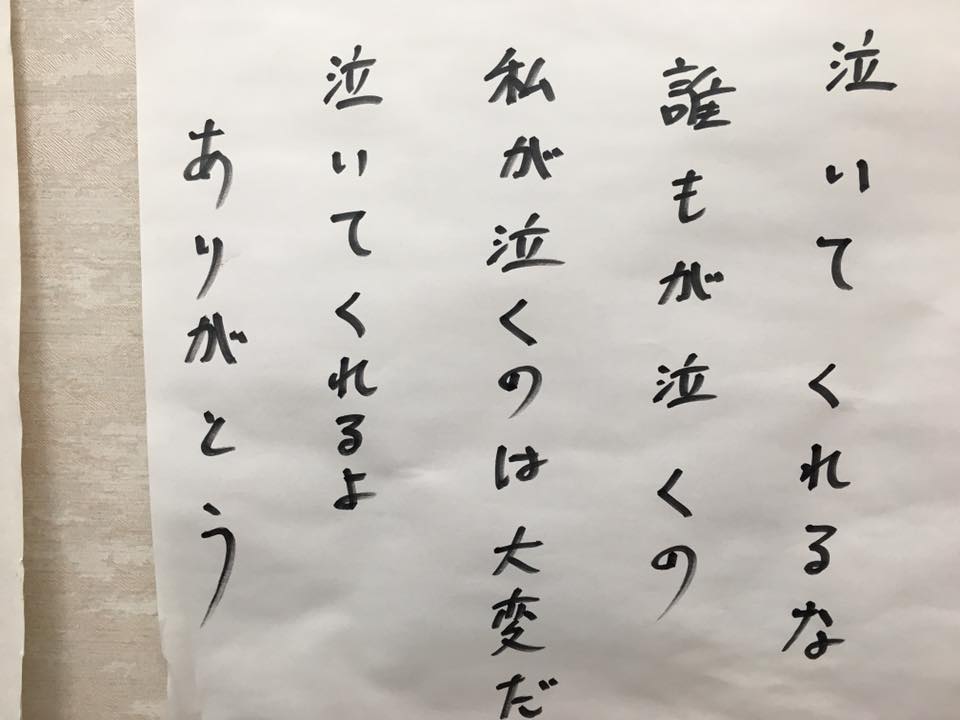 泣いてくれるな
誰もが泣くの
私が泣くのは大変だ
泣いてくれるよ
ありがとう